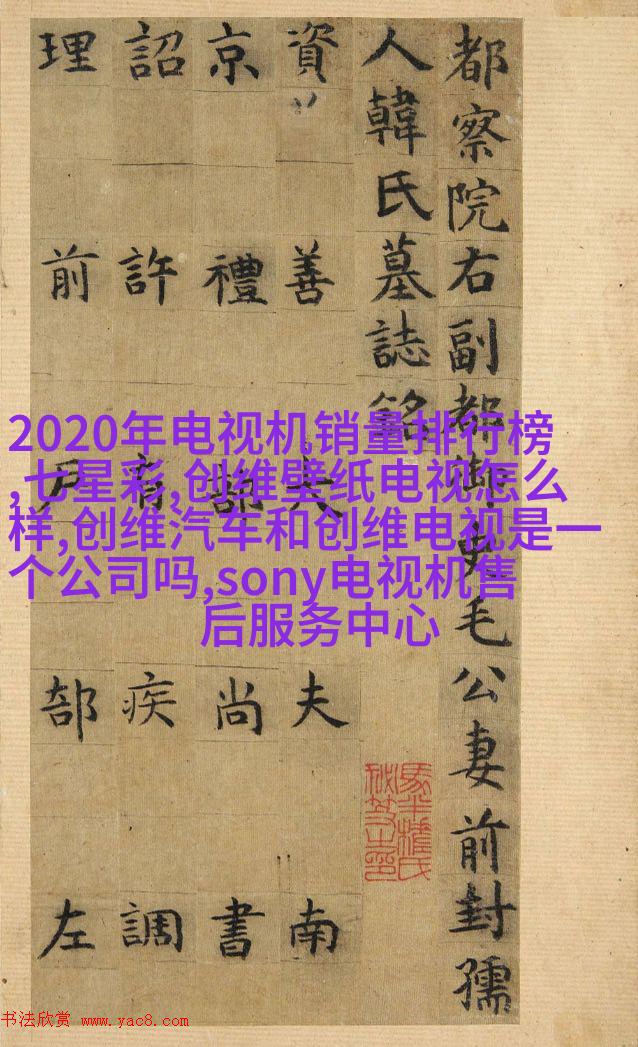 都察院右副都御史毛公妻前封孺
人韓氏墓誌銘
資善大夫南
京禮部尚書
詔許有疾調
理前戶部左
2020年电视机销量排行榜
,七星彩,创维壁纸电视怎么
样,创维汽车和创维电视是一
个公司吗,sony电视机售
后服务中心
书法欣赏 www.yac8.com